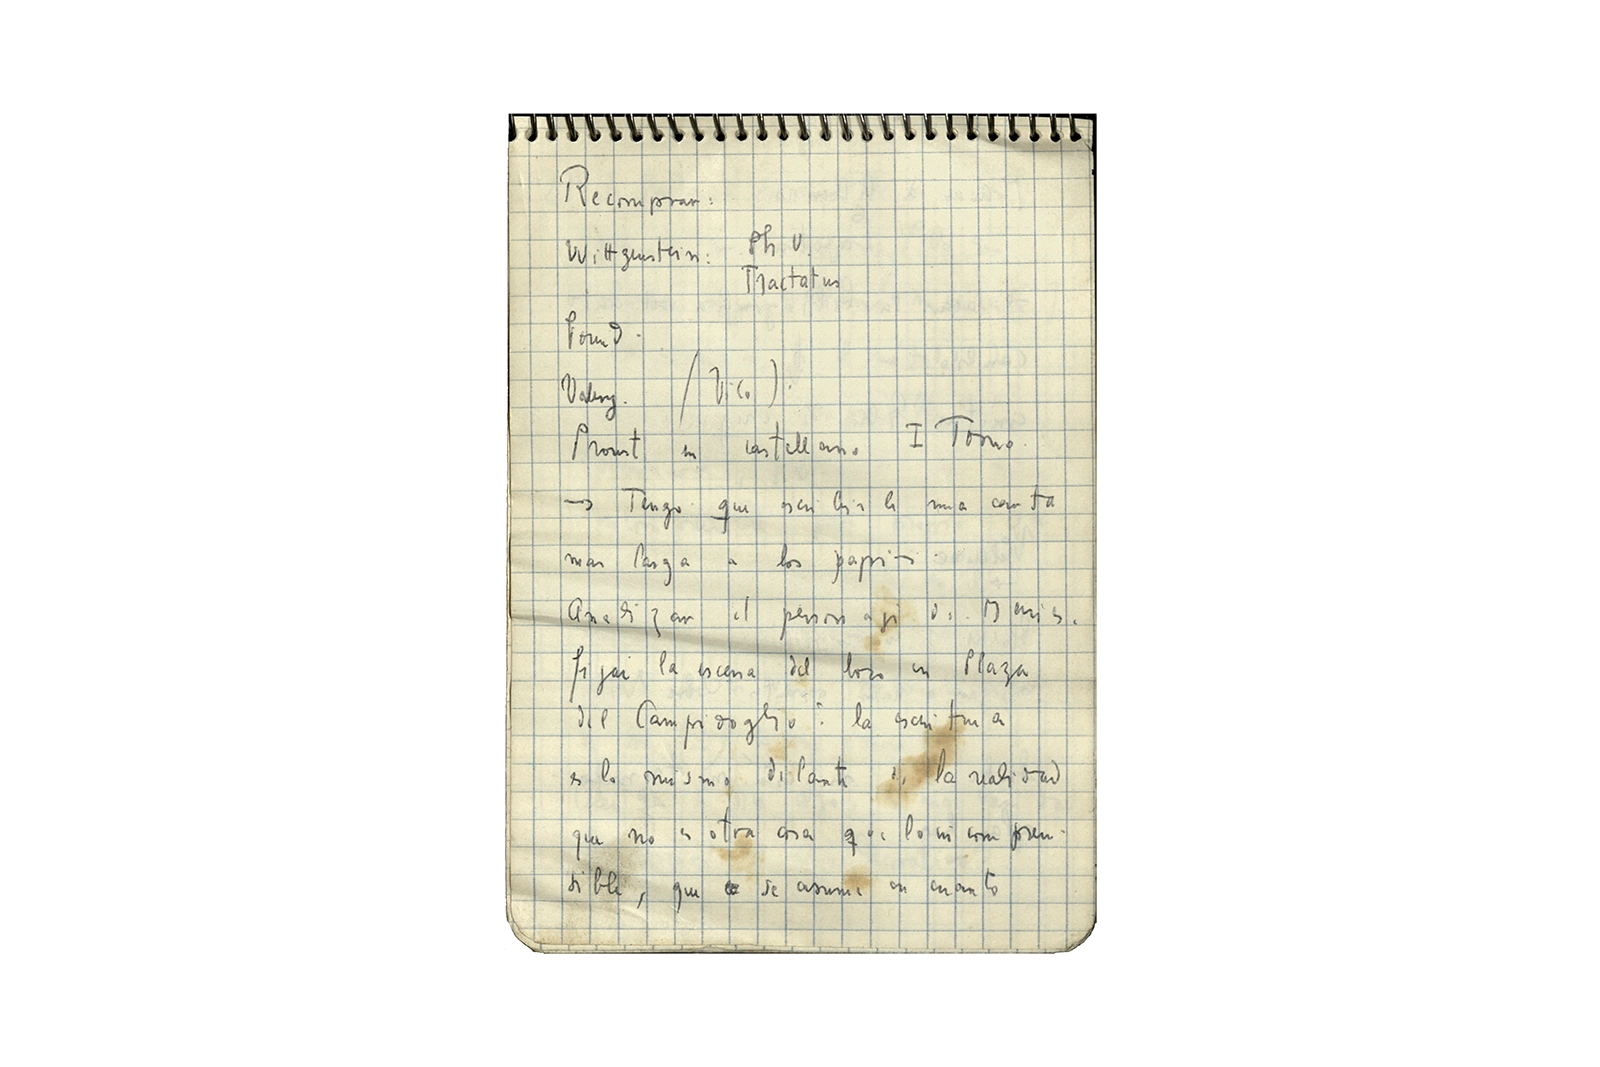 Recomprar:
Wittgenstein: Ph U.
Tractatus
Pound.
Valery. (Vico).
Proust en castellano I Tomo.
→ Tengo que escribirle una carta
mas larga a los papis.
Analizar el personaje de
fijar la escena del loro en Plaza
del Campidoglio: la escritura
es lo mismo delante de la realidad
que no es otra cosa que lo incompren-
sible, que se asume en cuanto